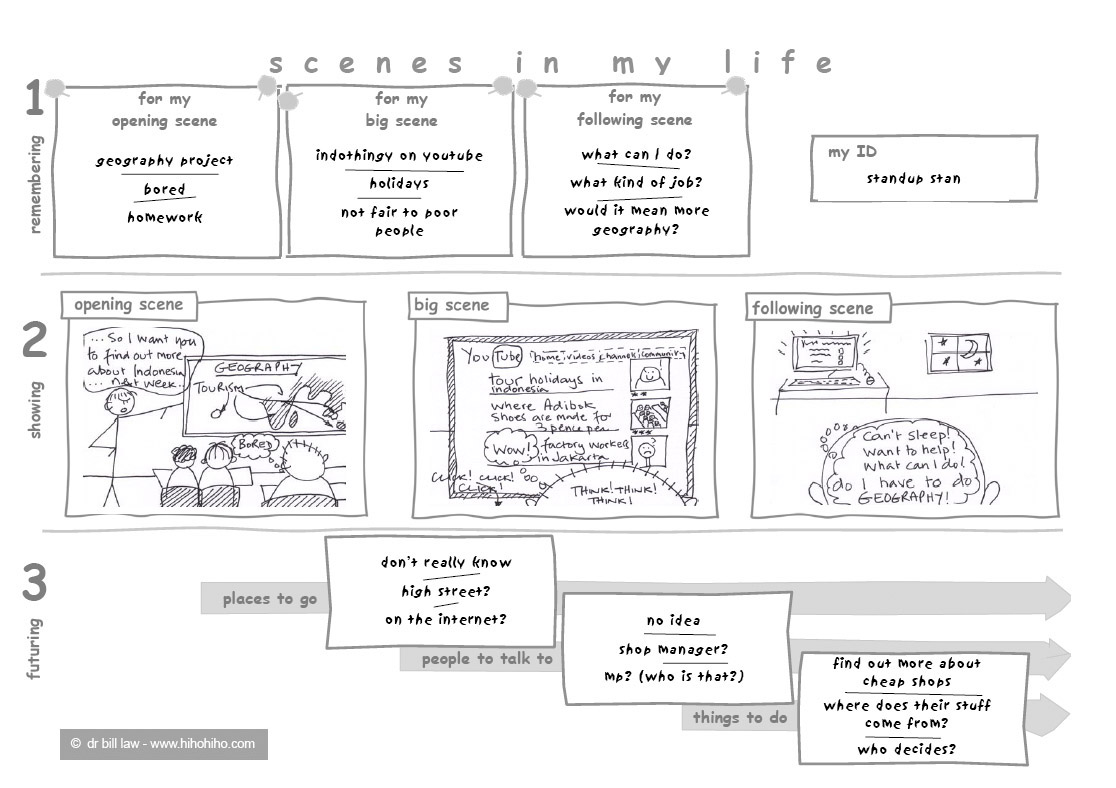 scenes in my life
1
remembering
for my
opening scene
geography project
bored
homework
for my
big scene
indothingy on youtube
holidays
not fair to poor
people
for my
following scene
what can I do?
what kind of job?
would it mean more
geography?
my ID
standup stan
2
showing
opening scene
...So I want you
to find out more
about Indonesia
... next week...
GEOGRAPHY
TOURISM
BORED
big scene
YouTube home videos channels community
tour holidays in
indonesia
where Adibok
shoes are made for
3 pence per
Wow! factory workers
in Jakarta
Click! Click!
Click!
THINK! THINK!
THINK!
following scene
Can't sleep!
Want to help!
What can I do!
do I have to do
GEOGRAPHY!
3
futuring
places to go
don't really know
high street?
on the internet?
people to talk to
no idea
shop manager?
mp? (who is that?)
things to do
find out more about
cheap shops
where does their stuff
come from?
who decides?
© dr bill law - www.hihohiho.com